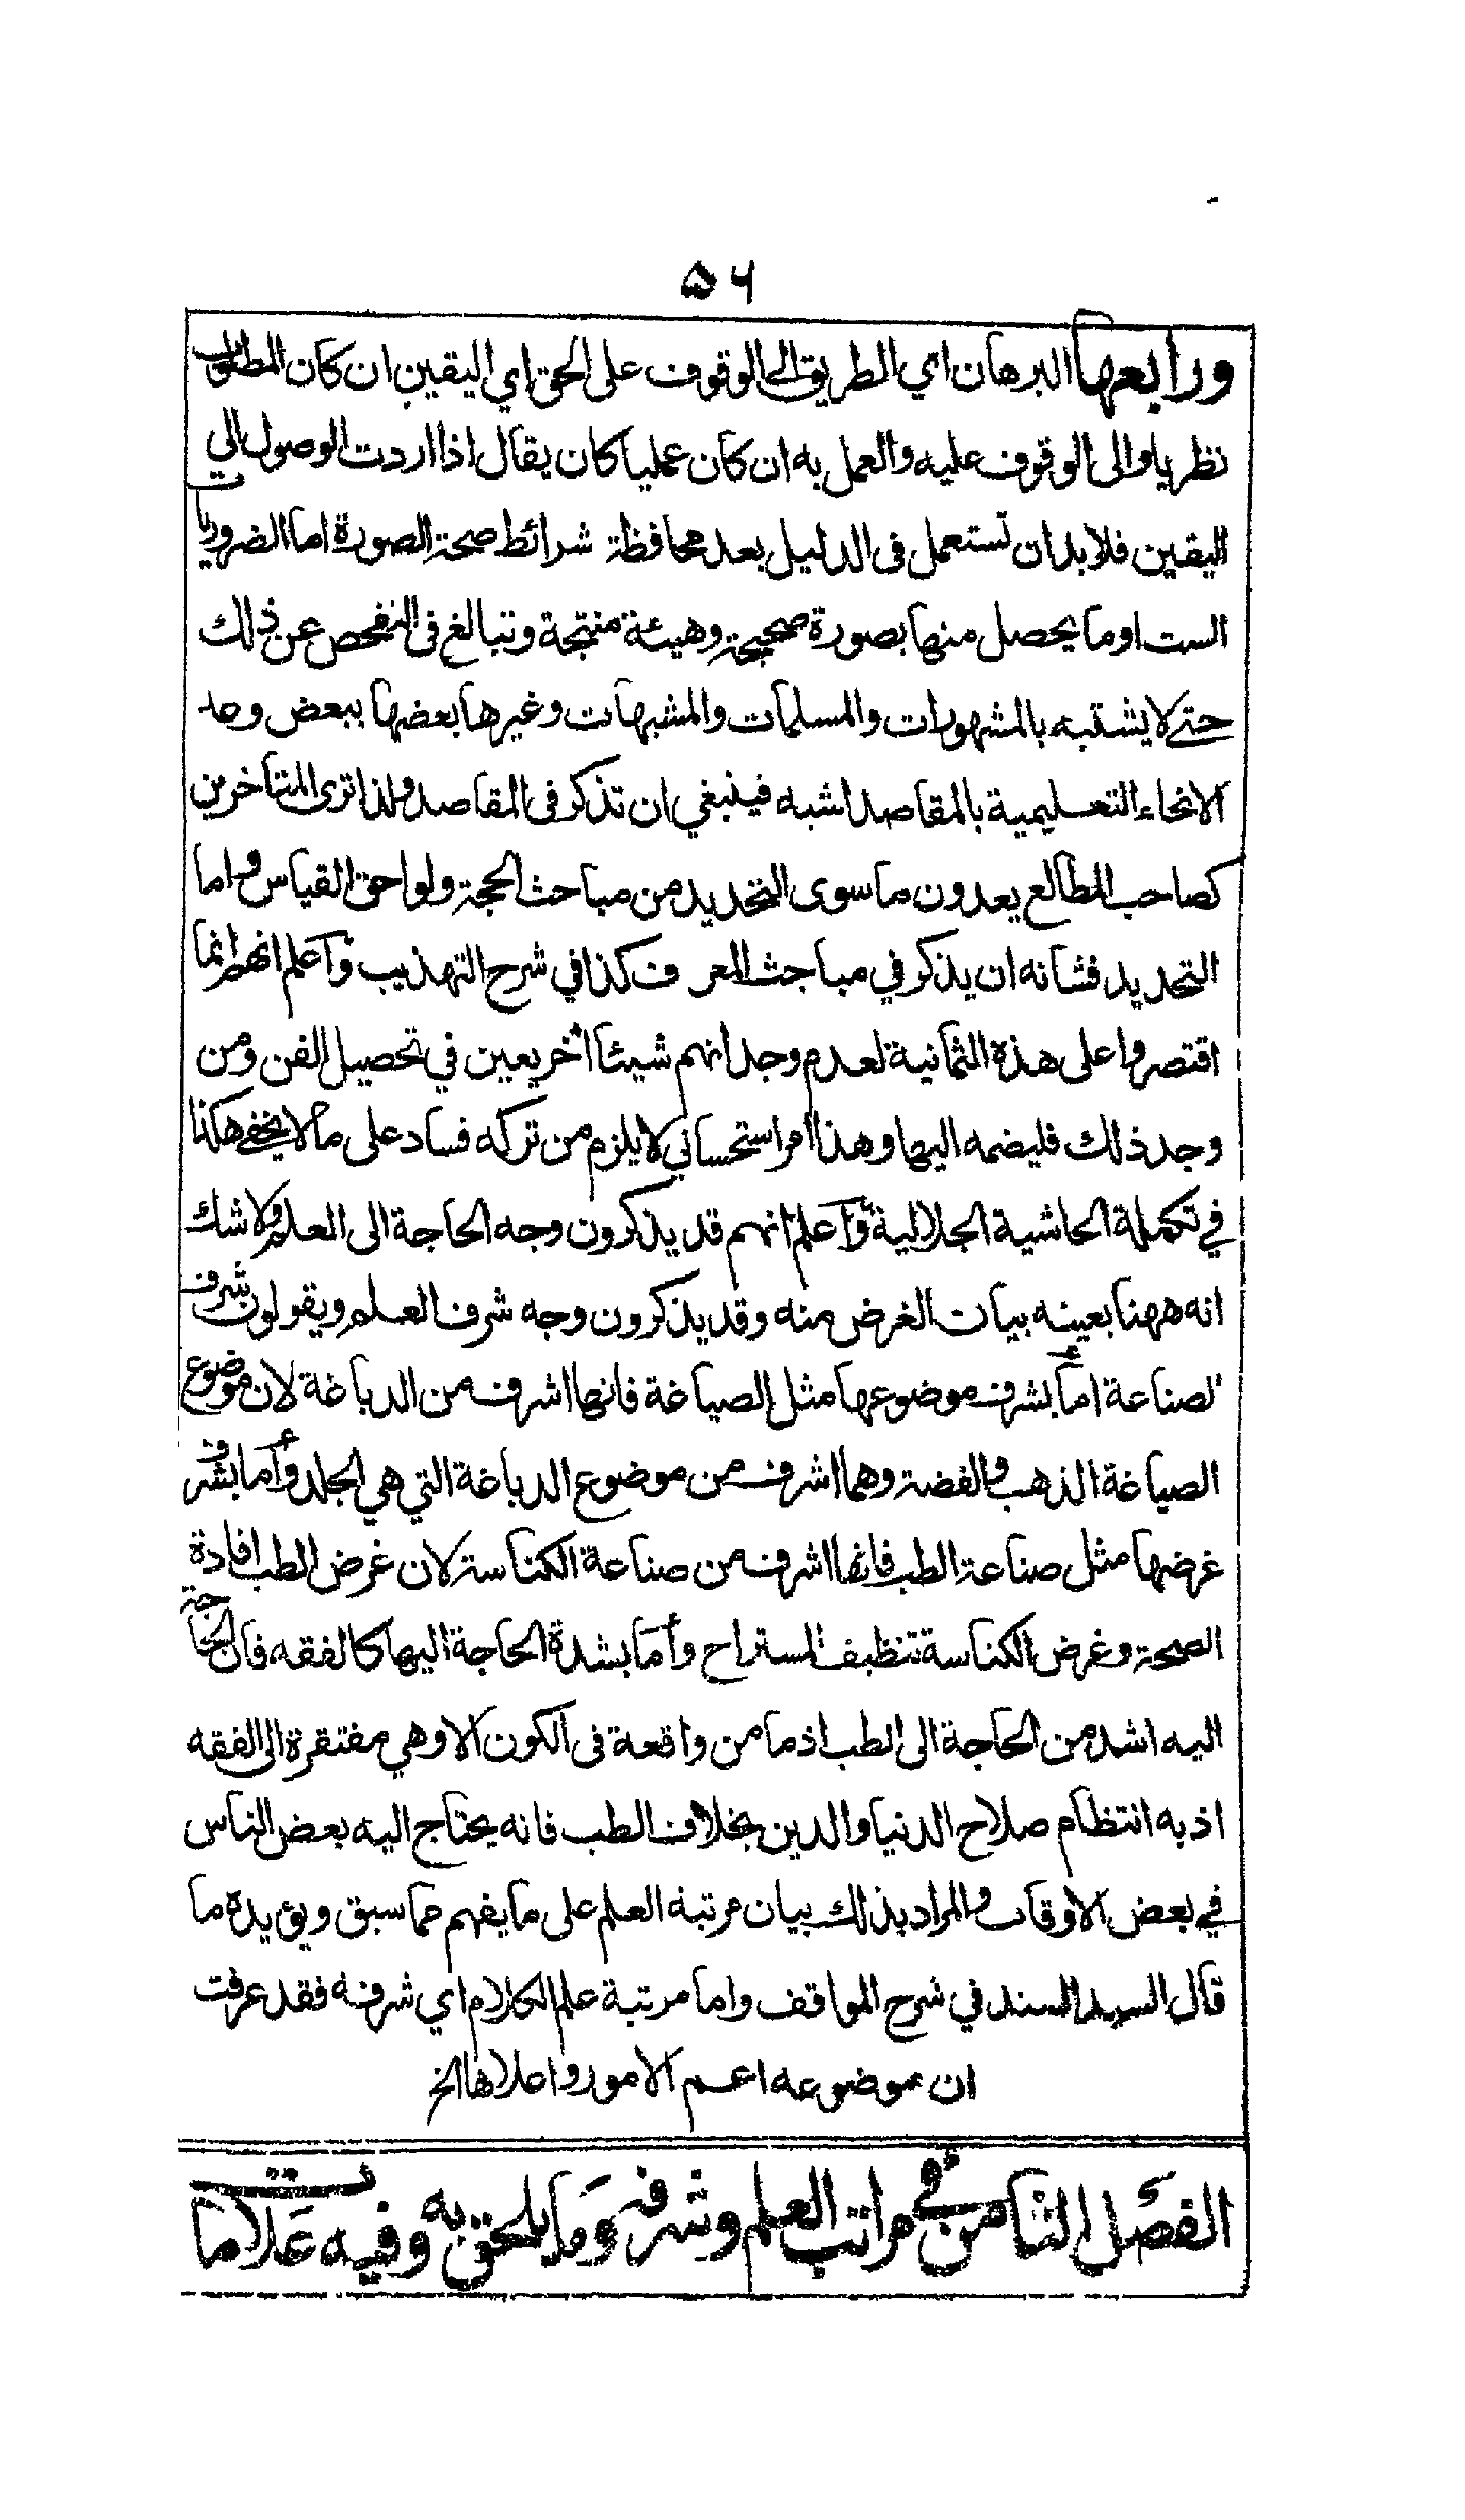 ۵۶
ورابعها البرهان اي الطريق الى الوقوف على الحق اي اليقين ان كان المطلوب
نظريا والى الوقوف عليه والعمل به ان كان عمليا كان يقال اذا اردت الوصول الي
اليقين فلا بد ان تستعمل فى الدليل بعد محافظة شرائط صحة الصورة اما الضروريات
الست او ما يحصل منها بصورة صحيحة وهيئة منتجة وتبالغ فى التفحص عن ذلك
حتى لا يشتبه بالمشهورات والمسلمات والمشبهات وغيرها بعضها ببعض وعد
الانحاء التعليمية بالمقاصد اشبه فينبغي ان تذكر فى المقاصد ولذا ترى المتاخرين
كصاحب المطالع يعدون ما سوى التحديد من مباحث الحجة ولواحق القياس واما
التحديد فشانه ان يذكر في مباحث المعرف كذا في شرح التهذيب واعلم انهم انما
اقتصروا على هذه الثمانية لعدم وجدانهم شيئا اخر يعين في تحصيل الفن ومن
وجد ذلك فليضمه اليها وهذا امر استحساني لا يلزم من تركه فساد على ما لا يخفى هكذا
في تكملة الحاشية الجلالية واعلم انهم قد يذكرون وجه الحاجة الى العلم ولا شك
انه ههنا بعينه بيان الغرض منه وقد يذكرون وجه شرف العلم ويقولون شرف
الصناعة اما بشرف موضوعها مثل الصياغة فانها اشرف من الدباغة لان موضوع
الصياغة الذهب والفضة وهما اشرف من موضوع الدباغة التي هي الجلد واما بشرف
غرضها مثل صناعة الطب فانها اشرف من صناعة الكناسة لان غرض الطب افادة
الصحة وغرض الكناسة تنظيف المستراح واما بشدة الحاجة اليها كالفقه فان الحاجة
اليه اشد من الحاجة الى الطب اذ ما من واقعة فى الكون الا وهي مفتقرة الى الفقه
اذ به انتظام صلاح الدنيا والدين بخلاف الطب فانه يحتاج اليه بعض الناس
في بعض الاوقات والمراد بذلك بيان مرتبة العلم على ما يفهم مما سبق ويؤيده ما
قال السيد السند في شرح المواقف واما مرتبة علم الكلام اي شرفه فقد عرفت
ان موضوعه اعم الامور واعلاها الخ
الفصل الثامن في مراتب العلم وشرفه وما يلحق به وفيه علامات